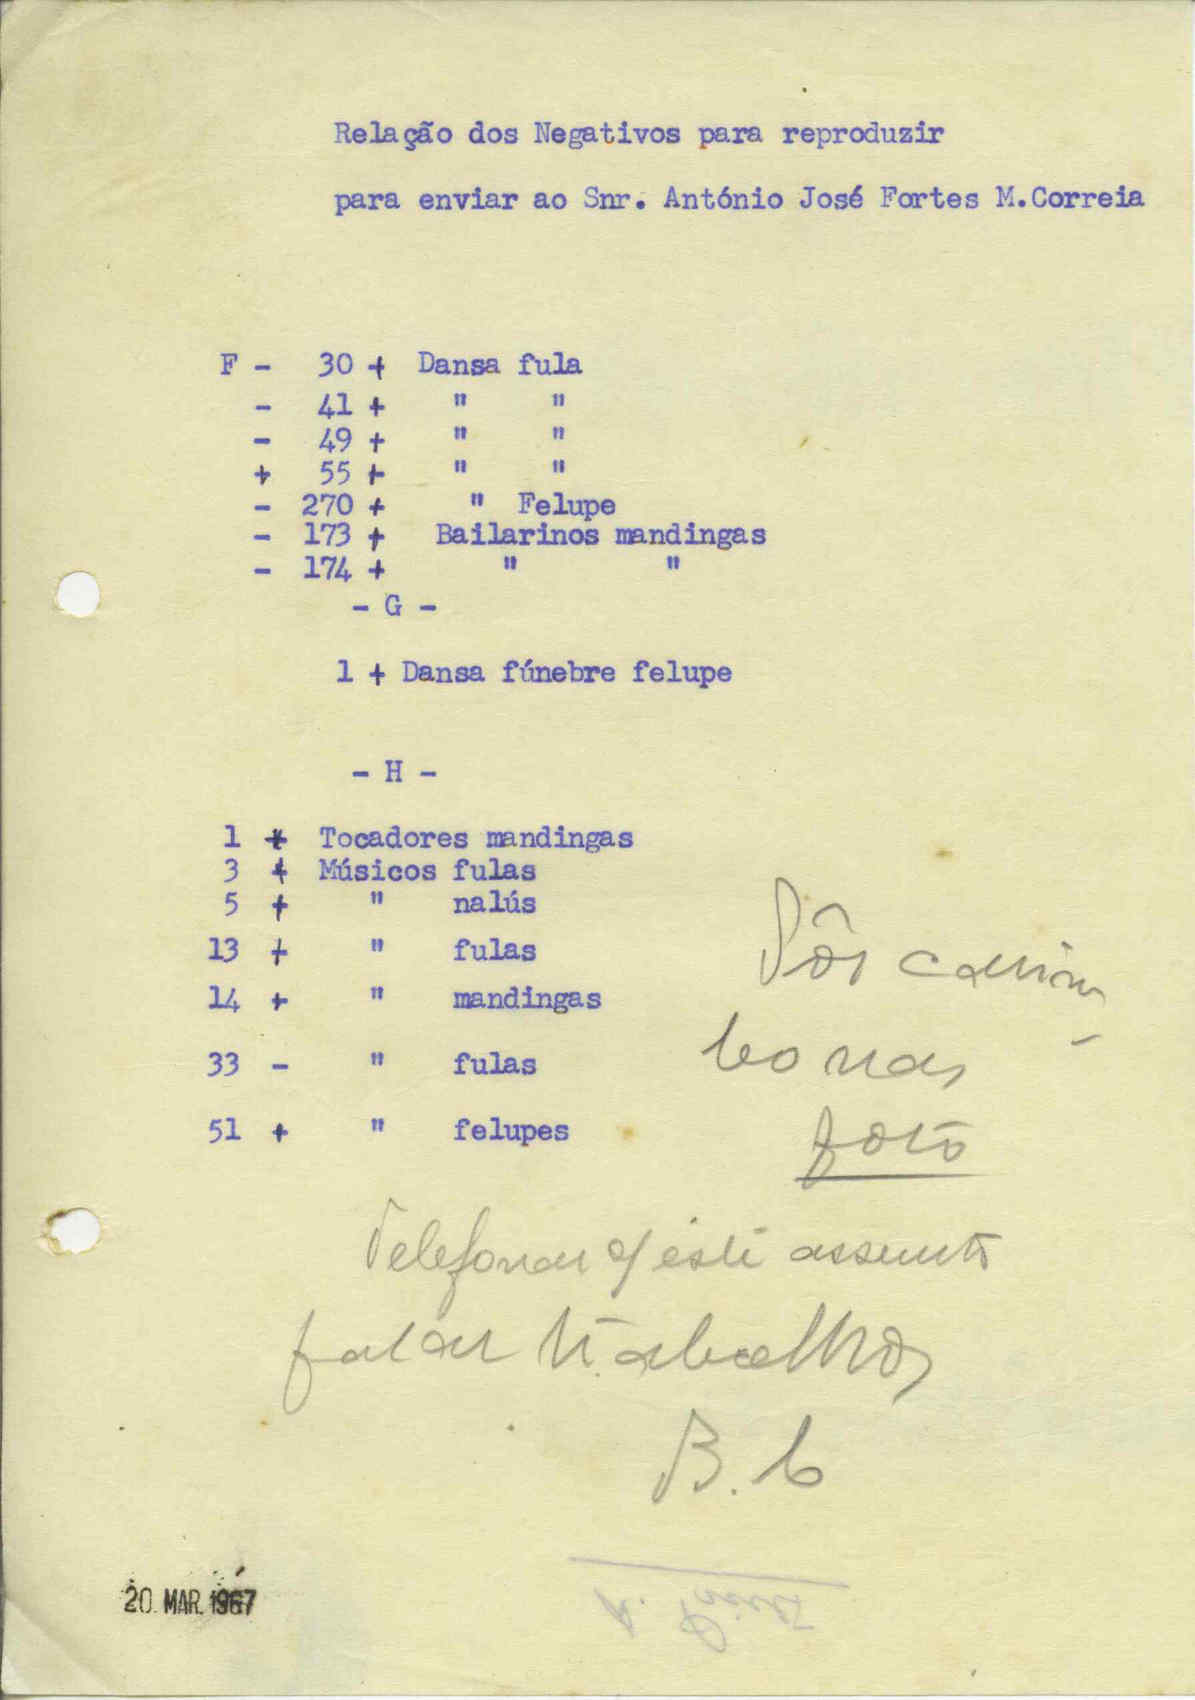 Relação dos Negativos para reproduzir
para enviar ao Snr. António José Fortes M.Correia
F - 30 + Dansa fula
- 41 + " "
- 49 + " "
+ 55 + " "
- 270 + " Felupe
- 173 + Bailarinos mandingas
- 174 + " "
- G -
1 + Dansa fúnebre felupe
- H -
1 + Tocadores mandingas
3 + Músicos fulas
5 + " nalús
13 + " fulas
14 + " mandingas
33 - " fulas
51 + " felupes
Pôr carim-
bo nas
foto
Telefonar s/ este assunto
falar
B.C
20. MAR. 1967